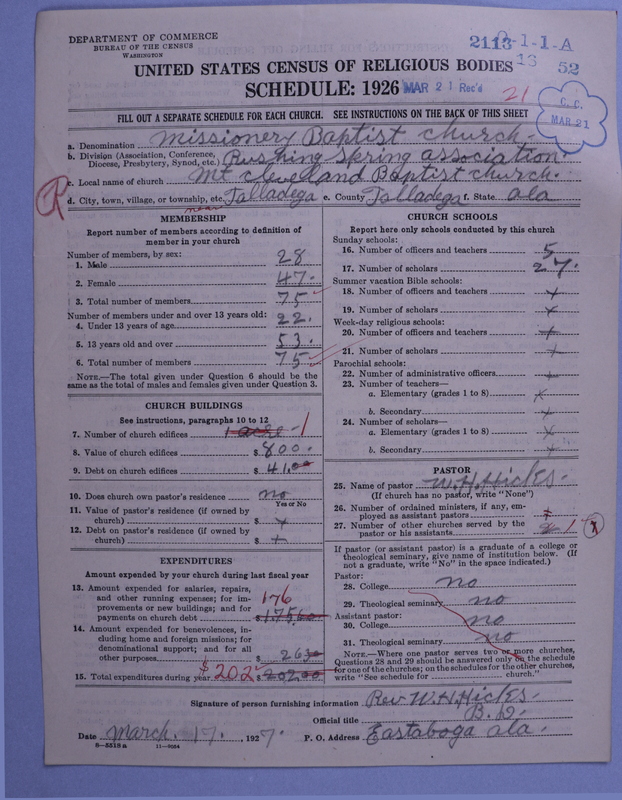 DEPARTMENT OF COMMERCE
BUREAU OF THE CENSUS
WASHINGTON
2113-1-1-A
13 52
UNITED STATES CENSUS OF RELIGIOUS BODIES
SCHEDULE: 1926 MAR 21 Rec'd
21
C. C.
MAR 21
FILL OUT A SEPARATE SCHEDULE FOR EACH CHURCH. SEE INSTRUCTIONS ON THE BACK OF THIS SHEET
a. Denomination Missionery Baptist church
b. Division (Association, Conference, Diocese, Presbytery, Synod, etc.) Rushing Spring association
c. Local name of church Mt Cleveland Baptist church.
d. City, town, village, or township, etc. near Talladega e. County Talladega f. State ala
MEMBERSHIP
Report number of members according to definition of
member in your church
Number of members, by sex:
1. Male 28
2. Female 47.
3. Total number of members 75
Number of members under and over 13 years old:
4. Under 13 years of age 22.
5. 13 years old and over 53.
6. Total number of members 75
NOTE.—The total given under Question 6 should be the
same as the total of males and females given under Question 3.
CHURCH BUILDINGS
See instructions, paragraphs 10 to 12
7. Number of church edifices 1
8. Value of church edifices $800.
9. Debt on church edifices $41.00
10. Does church own pastor's residence no
Yes or No
11. Value of pastor's residence (if owned by
church) $ x
12. Debt on pastor's residence (if owned by
church) $ x
EXPENDITURES
Amount expended by your church during last fiscal year
13. Amount expended for salaries, repairs,
and other running expenses; for im-
provements or new buildings; and for
payments on church debt 176 $175.60
14. Amount expended for benevolences, in-
cluding home and foreign missions; for
denominational support; and for all
other purposes $ 26.30
15. Total expenditures during year $202 $202.00
CHURCH SCHOOLS
Report here only schools conducted by this church
Sunday schools:
16. Number of officers and teachers 5
17. Number of scholars 27.
Summer vacation Bible schools:
18. Number of officers and teachers x
19. Number of scholars x
Week-day religious schools:
20. Number of officers and teachers x
21. Number of scholars x
Parochial schools:
22. Number of administrative officers x
23. Number of teachers—
a. Elementary (grades 1 to 8) x
b. Secondary x
24. Number of scholars—
a. Elementary (grades 1 to 8) x
b. Secondary x
PASTOR
25. Name of pastor W. H. Hicks.
(If church has no pastor, write "None")
26. Number of ordained ministers, if any, em-
ployed as assistant pastors x
27. Number of other churches served by the
pastor or his assistants 1 x
If pastor (or assistant pastor) is a graduate of a college or
theological seminary, give name of institution below. (If
not a graduate, write "No" in the space indicated.)
Pastor:
28. College no
29. Theological seminary no
Assistant pastor:
30. College no
31. Theological seminary no
NOTE.—Where one pastor serves two or more churches,
Questions 28 and 29 should be answered only on the schedule
for one of the churches; on the schedules for the other churches,
write "See schedule for church."
Signature of person furnishing information Rev W. H. Hicks.
Official title B. D.
Date March. 17., 1927. P. O. Address Eastaboga ala.
8—5518 a 11—9264